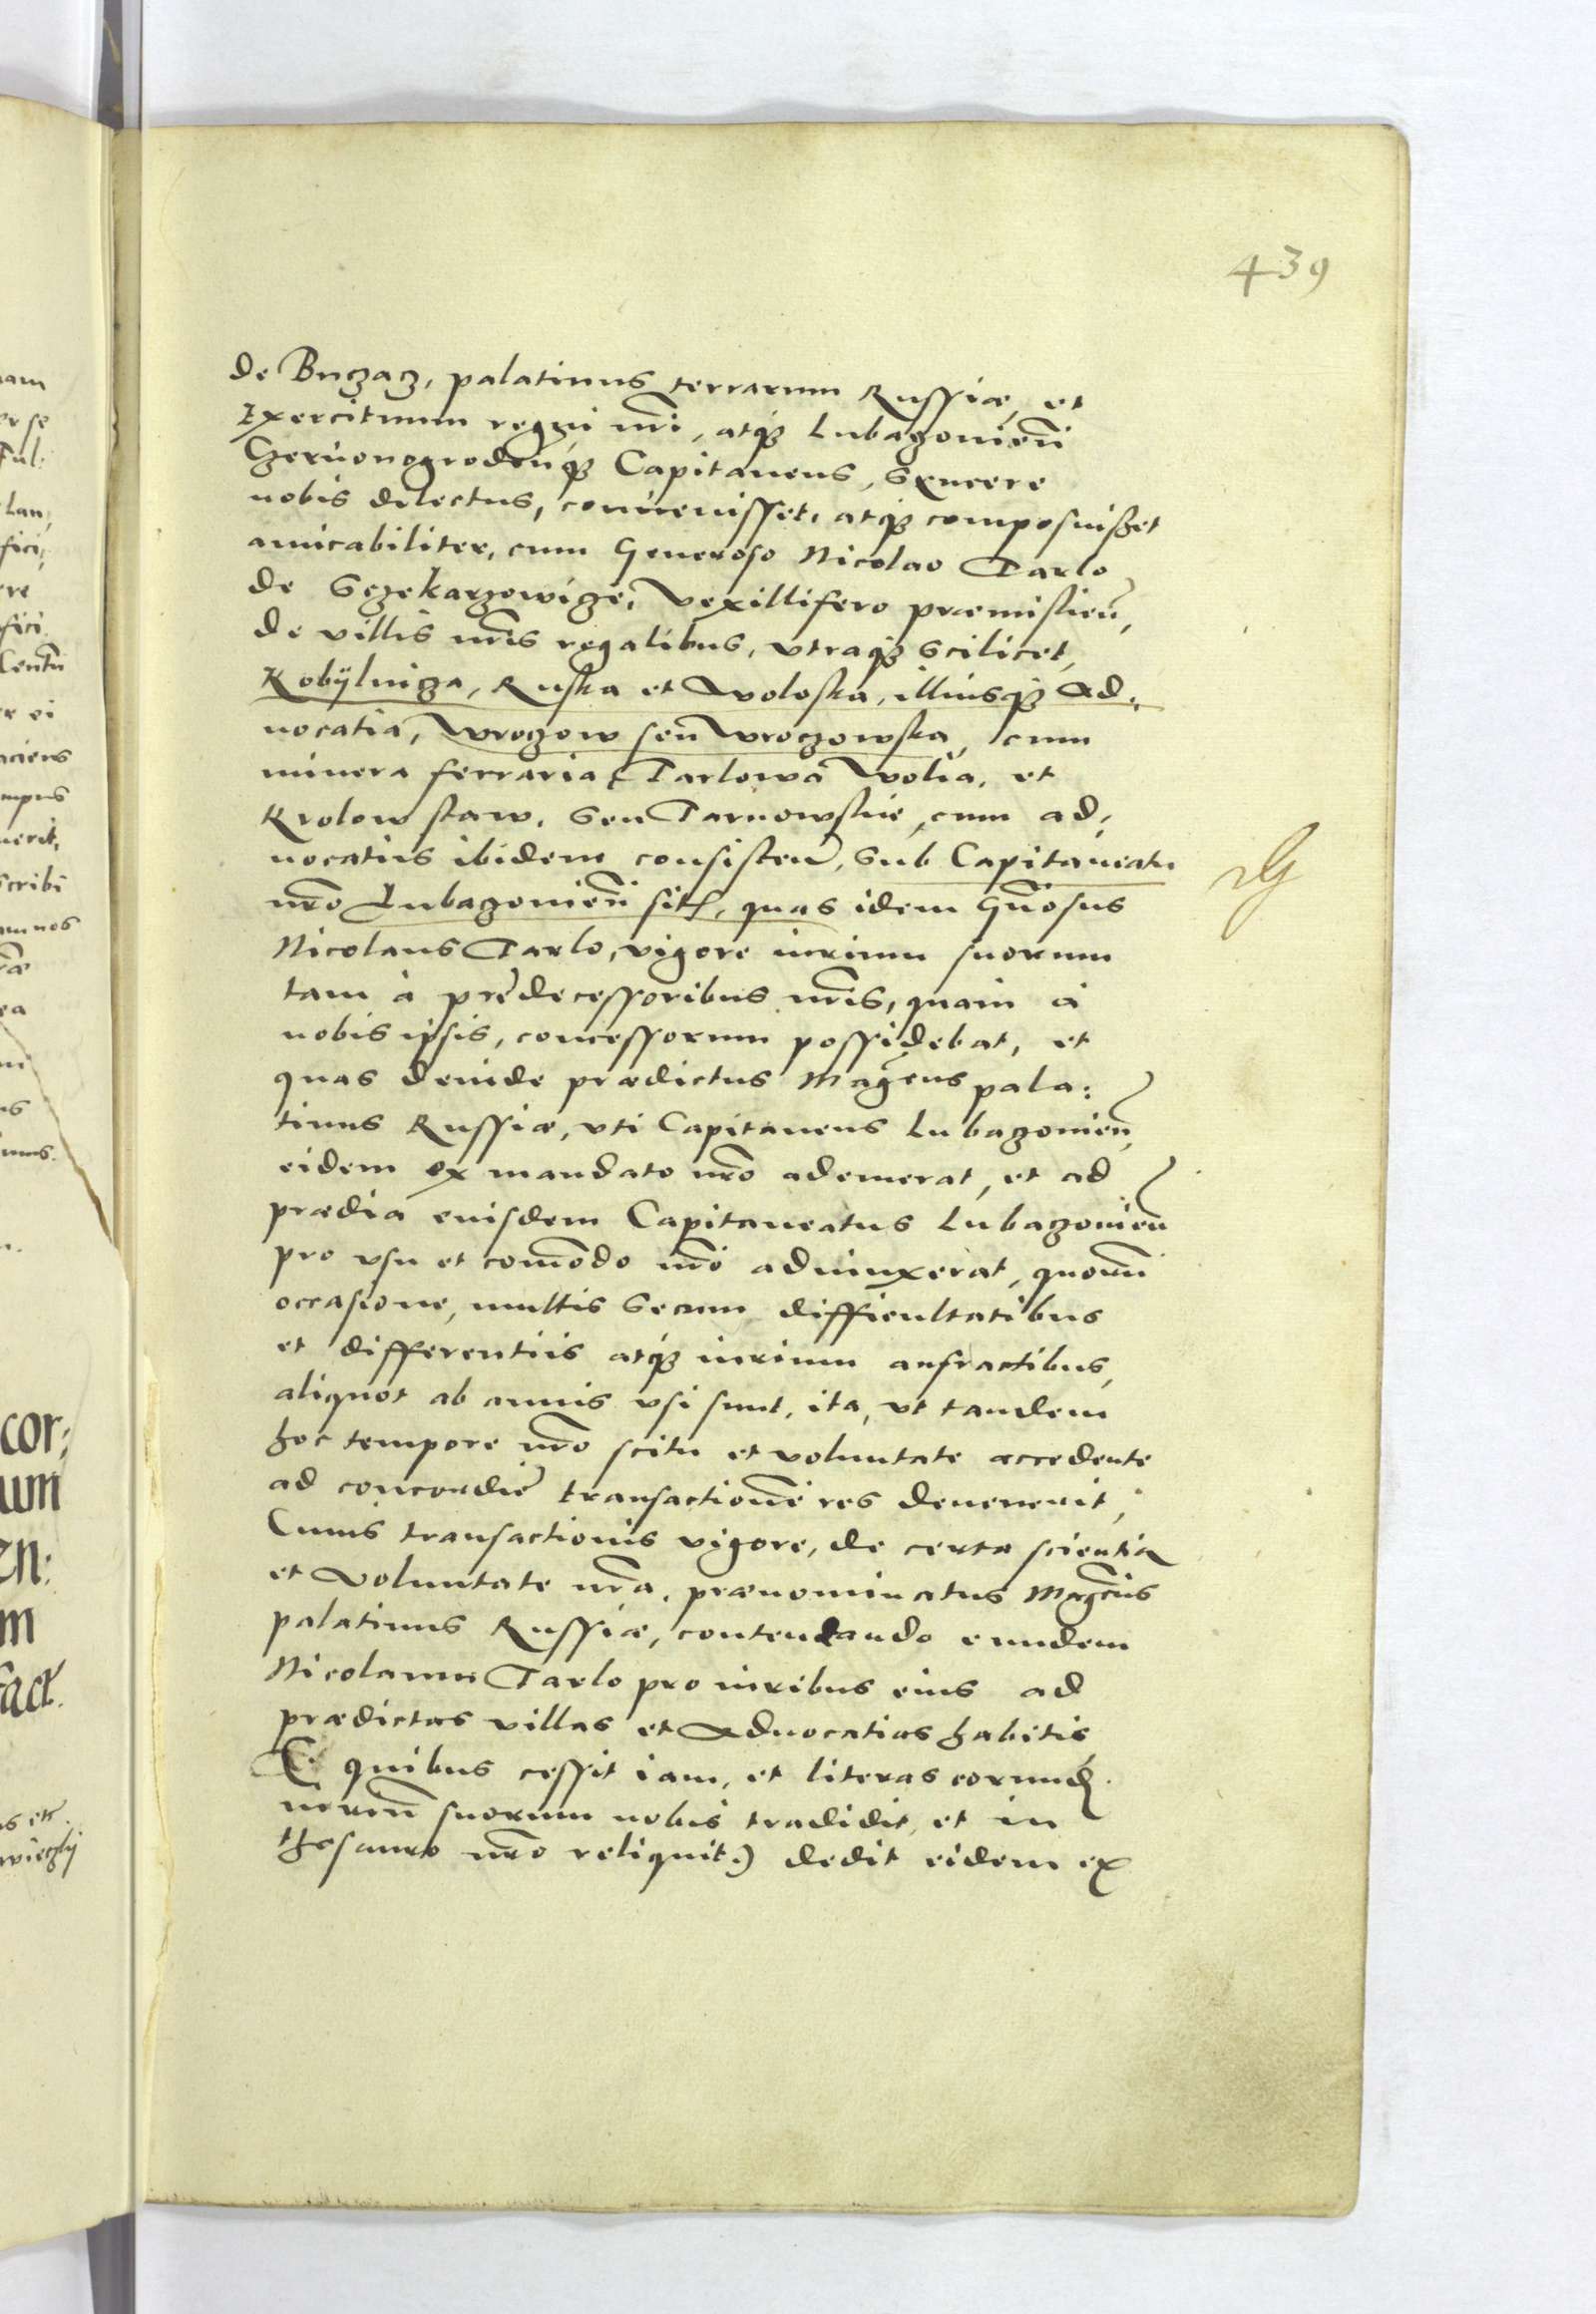 439
de Buczacz, palatinus terrarum Russiæ, et
Exercituum regni nri, atqz Lubaczovien
Czerúonogrodenqz Capitaneus, Syncere
nobis dilectus, conuenisset, atqz composuißet
amicabiliter, cum Generoso Nicolao Tarlo
de Sczekarzowicze, Vexillifero præmislien,
de villis nris regalibus, vtraqz scilicet,
Kobÿlnicza, Ruska et Woloska, illiusqz Ad:
uocatia, Wroczow seu Wroczowska, cum
minera ferraria, Tarlowa Wolia, et
Krolow staw, seu Tarnowskie, cum ad:
uocatiis ibidem consisten, sub Capitaneatu
nro Lubaczovien sit, quas idem Gnosus
Nicolaus Tarlo, vigore iurium suorum
tam à predecessoribus nris, quam à
nobis ipsis, concessorum possidebat, et
quas deinde prædictus Magcus pala:
tinus Russiæ, vti Capitaneus Lubaczovien,
eidem ex mandato nro ademerat, et ad
prædia eiusdem Capitaneatus Lubaczovien
pro vsu et comodo nro adiunxerat, quorum
occasione, multis secum difficultatibus
et differentiis atqz iurium anfractibus,
aliquot ab annis vsi sunt, ita, vt tandem
hoc tempore nro scitu et voluntate accedente
ad concordie transactione res deuenerit,
Cuius transactionis vigore, de certa scientia
et voluntate nra, prænominatus Magcus
palatinus Russiæ, contentando eundem
Nicolaum Tarlo pro iuribus eius ad
prædictas villas et Aduocatias habitis
quibus cessit iam, et literas eorund
iurium suorum nobis tradidit, et in
thesauro nro reliquit) dedit eidem ex